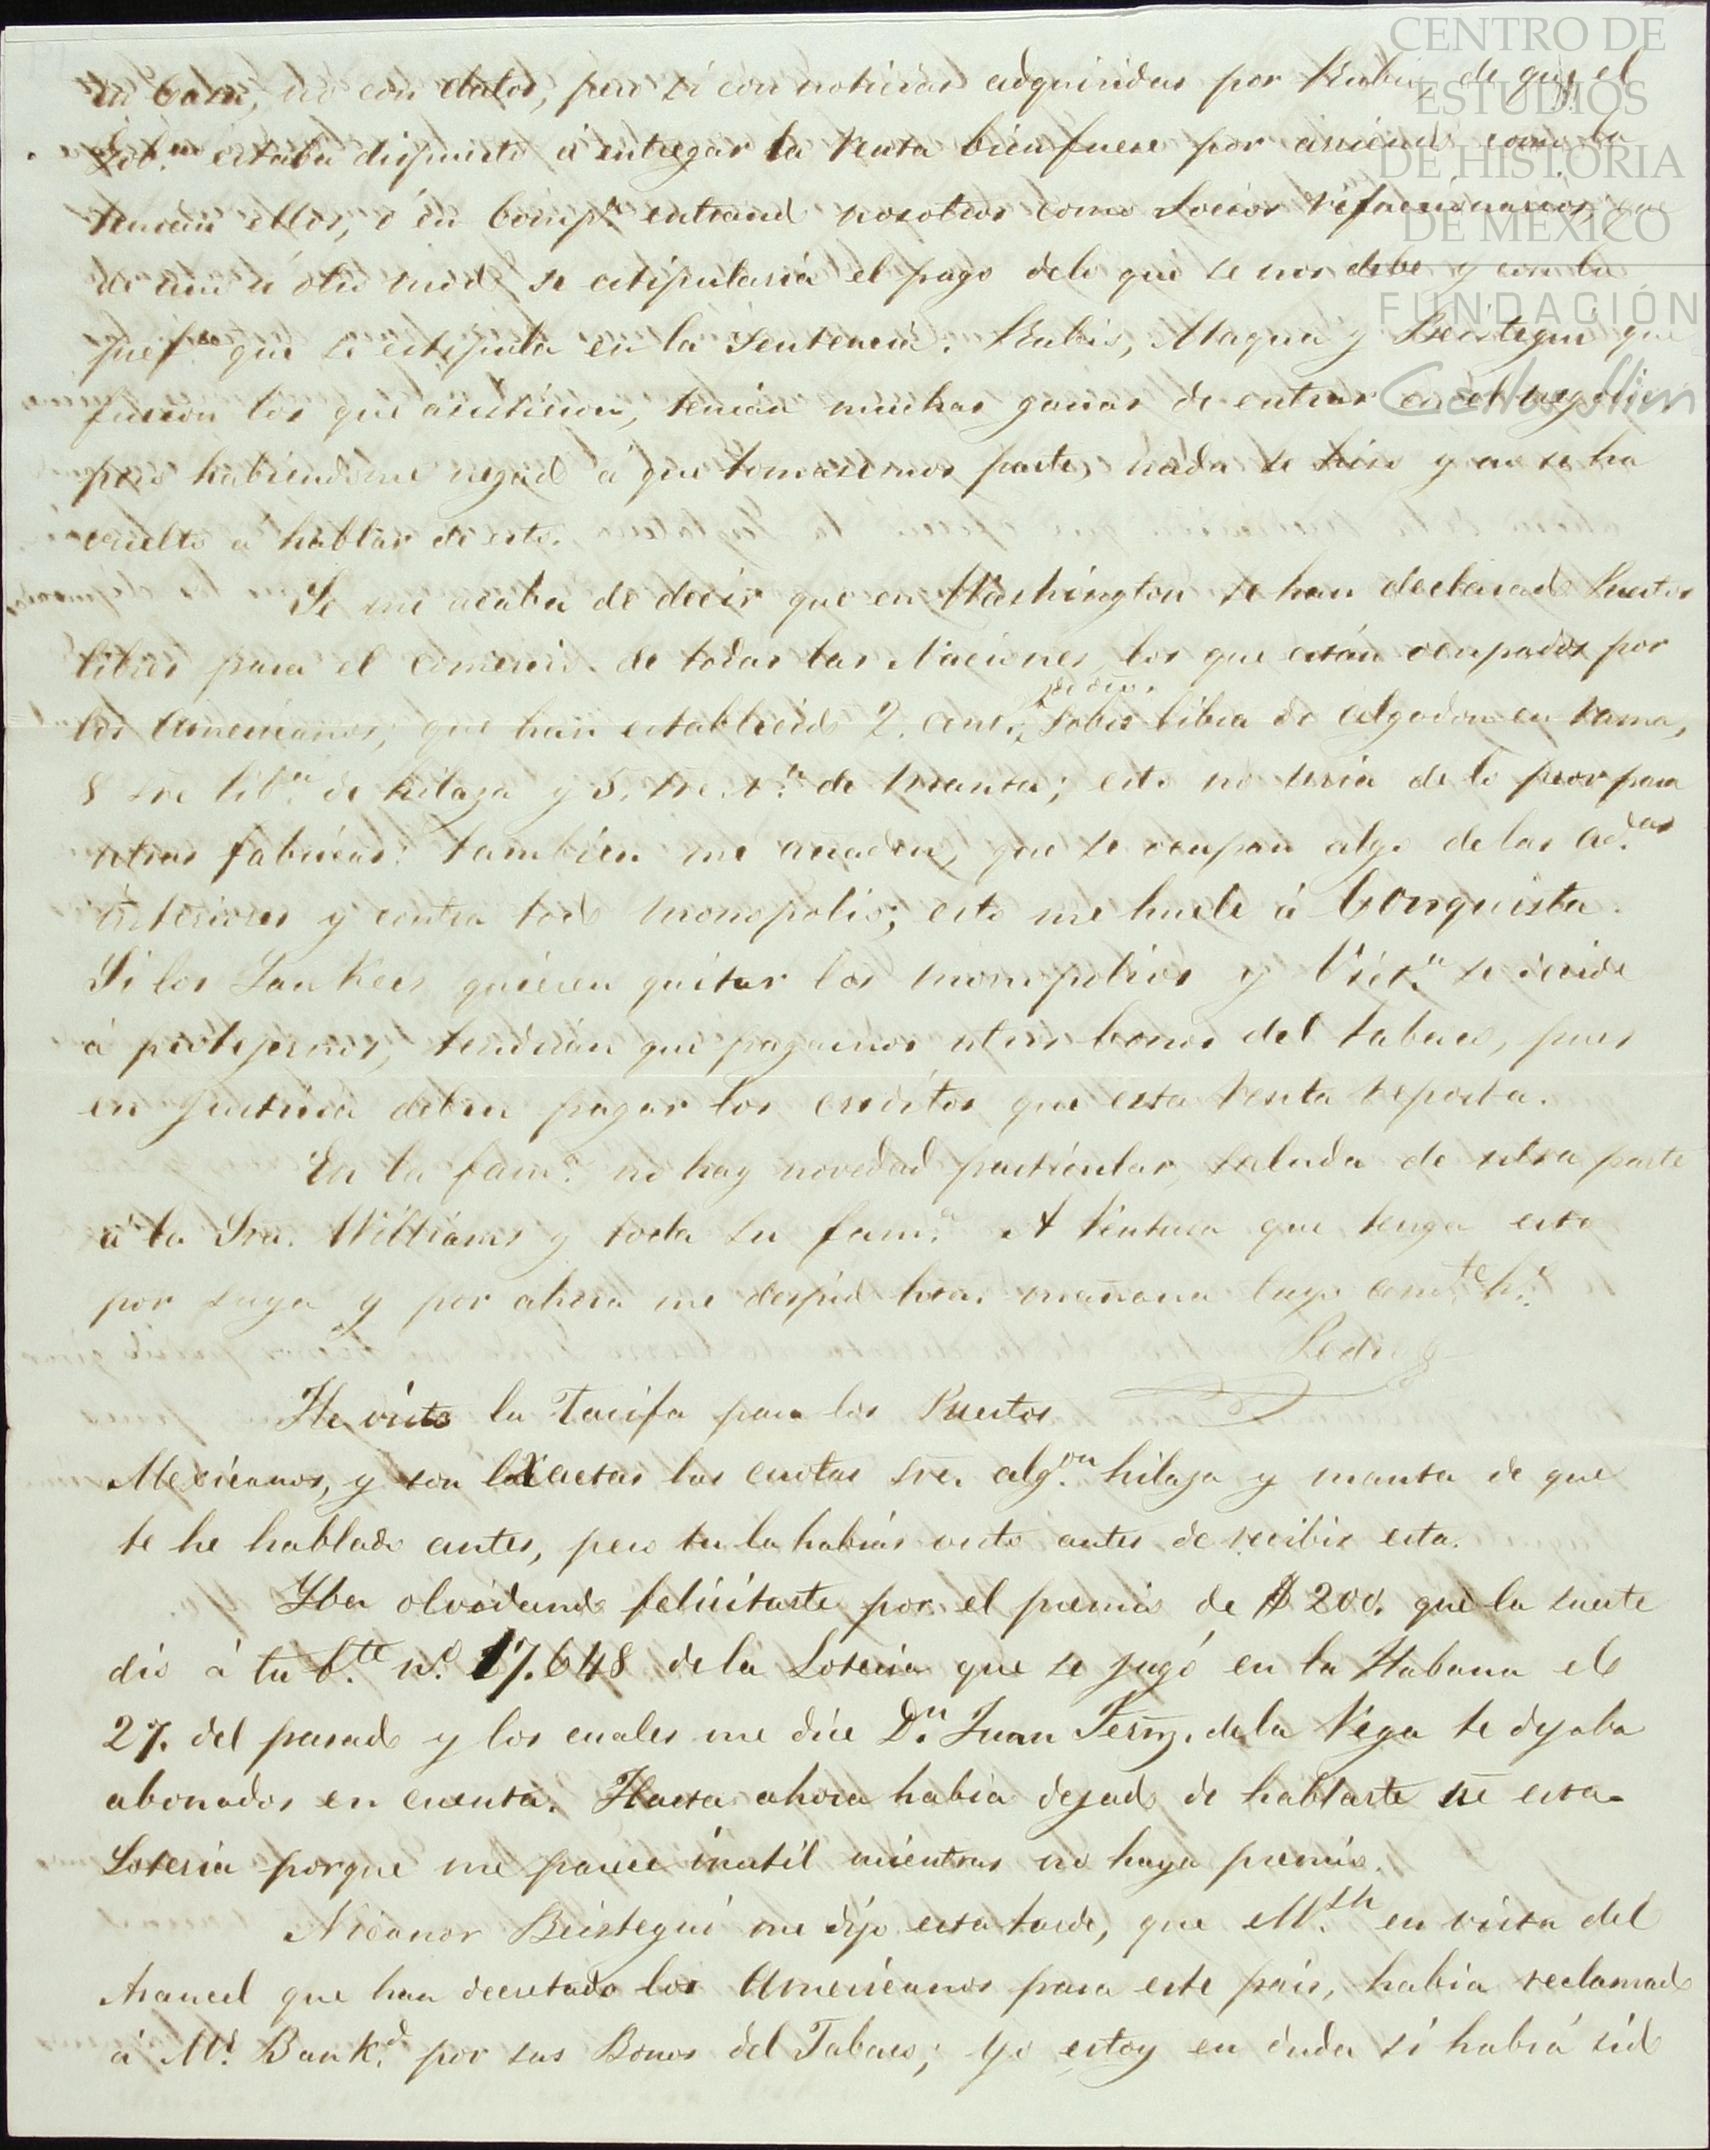 en casa, no con datos, pero si con noticias adquiridas por Rubio de que el
Gob.no estaba dispuesto á entregar la Renta bien fuese por arriendo como la
tenian ellos, ó en Comp.a entrando nosotros como Socios refaccionarios, que
de uno ú otro modo se estipularia el pago delo que se nos debe y con la
pref.a que se estipula en la Sentencia. Rubio, Magua y Beistegui que
fueron los que asistieron, tenian muchas ganas de entrar en el negocio,
pero habiendome negado á que tomasemos parte, nada se hizo y no se ha
vuelto á hablar de esto.
Se me acaba de decir que en Washington se han declarado Puertos
libres para el comercio de todas las Naciones los que están ocupados por
los Americanos, que han establecido 2. cent. de dro. sobre libra de algodon en rama,
8 sre lib.a de hilaza y 5. sre. v.a de manta; esto no seria de lo peor para
ntras fabricas: tambien me añaden, que se ocupan algo de las ad.as
interiores y contra todo monopolio; esto me huele á Conquista.
Si los Yankees quieren quitar los monopolios y Vict.a se decide
á protejernos, tendrán que pagarnos ntros bonos del tabaco, pues
en justicia deben pagar los creditos que esta renta reporta.
En la fam.a no hay novedad particular, saluda de ntra parte
á la Sra. Williams y toda su fam.a A Ventura que tenga esta
por suya y por ahora me despido hta. mañana tuyo am.te h.o
Pedro
He visto la Tarifa para los Puertos
Mexicanos, y son Exactas las cuotas sre. alg.on hilaza y manta de que
te he hablado antes, pero tu la habrás visto antes de recibir esta.
Yba olvidando felicitarte por el premio de $ 200. que la suerte
dió á tu b.te n.o 17.648 de la Loteria que se jugó en la Habana el
27. del pasado y los cuales me dice D.n Juan Fernz. dela Vega te dejaba
abonados en cuenta. Hasta ahora habia dejado de hablarte sre esta
Loteria porque me parece inutil mientras no haya premio.
Nicanor Beistegui me dijo esta tarde, que M.sh en vista del
Arancel que han decretado los Americanos para este pais, habia reclamado
á M.r Bank.d por sus Bonos del Tabaco; yo estoy en duda si habrá sido
CENTRO DE
ESTUDIOS
DE HISTORIA
DE MÉXICO
FUNDACIÓN
Carlos Slim